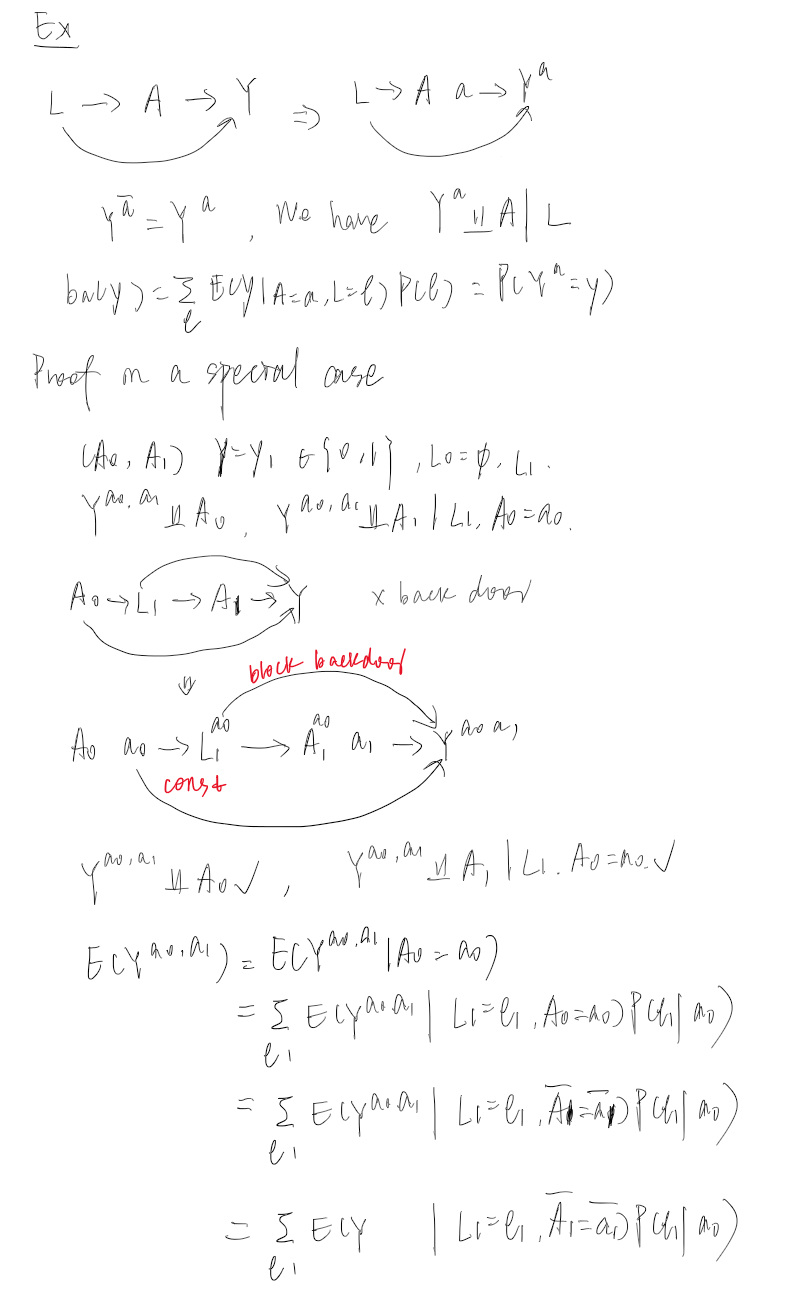 Ex
L → A → Y ⇒ L → A a → Y^a
Y^ā = Y^a, We have Y^a ⫫ A | L
ba(y) = Σ_l E(Y|A=a, L=l) P(l) = P(Y^a=y)
Proof in a special case
(A0, A1) Y=Y1 ∈ {0,1}, L0=φ, L1.
Y^{a0,a1} ⫫ A0, Y^{a0,a1} ⫫ A1 | L1, A0=a0.
A0 → L1 → A1 → Y x back door
⇓ block backdoor
A0 a0 → L1^{a0} → A1^{a0} a1 → Y^{a0 a1}
const
Y^{a0,a1} ⫫ A0 √, Y^{a0,a1} ⫫ A1 | L1. A0=a0. √
E(Y^{a0,a1}) = E(Y^{a0,a1} | A0=a0)
= Σ_{l1} E(Y^{a0,a1} | L1=l1, A0=a0) P(l1|a0)
= Σ_{l1} E(Y^{a0,a1} | L1=l1, Ā1=ā1) P(l1|a0)
= Σ_{l1} E(Y | L1=l1, Ā1=ā1) P(l1|a0)